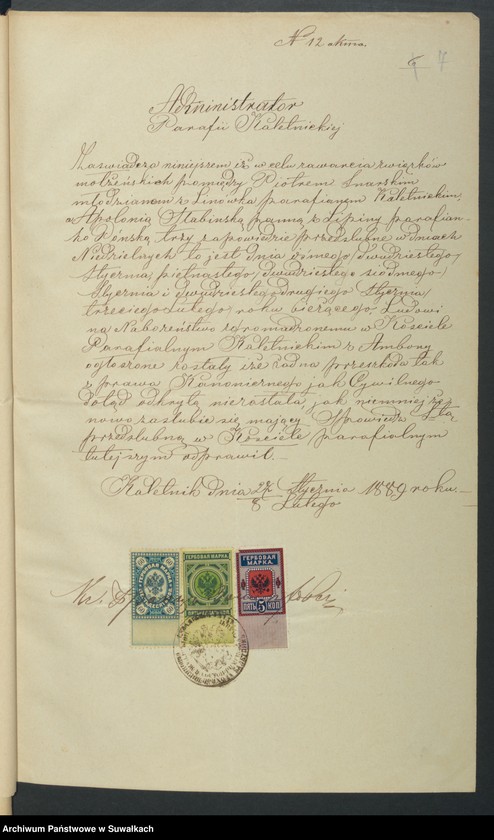 N 12 aktu.
7
Administrator
Parafii Kaletnickiej
Zaświadcza niniejszem iż w celu zawarcia związków
małżeńskich pomiędzy Piotrem Snarskim
młodzianem z Linówka parafianem Kaletnickim,
a Apolonią Stabińską panną z Lipiny parafian-
ką trzy zapowiedzie przedślubne w dniach
Niedzielnych to jest dnia ósmego/dwudziestego
Stycznia, piętnastego/dwudziestego siódmego/
Stycznia i dwudziestego drugiego Stycznia/
trzeciego Lutego/ roku bieżącego Ludowi
na Nabożeństwo zgromadzonemu w Kościele
Parafialnym Kaletnickim z Ambony
ogłoszone zostały i że żadna przeszkoda tak
z prawa Kanonicznego jak Cywilnego
dotąd odkrytą niezostała, jak niemniej że
nowo zaślubić się mający Spowiedź Stą
przedślubną w Kościele parafialnym
tutejszym odprawił.
Kaletnik dnia 27/8 Stycznia/Lutego 1889 roku.
60 60
60 60
ГЕРБОВАЯ МАРКА
ГЕРБОВАЯ
МАРКА
ПЯТЬ 5 КОП
Archiwum Państwowe w Suwałkach